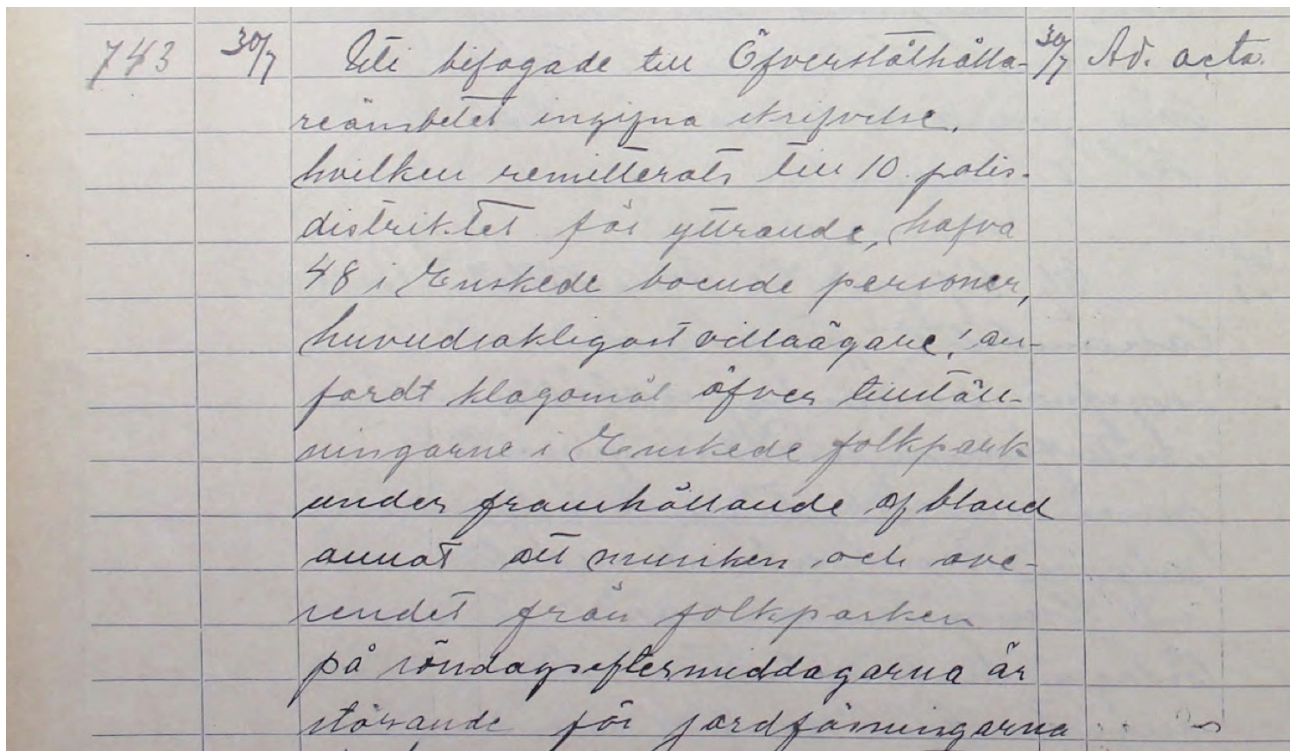 743 30/7 Uti bifogade till Öfverståthålla- 30/7 Ad. acta.
reämbetet ingifna skrifvelse,
hvilken remitterats till 10. polis-
distriktet för yttrande, hafva
48 i Enskede boende personer,
huvudsakligast villaägare, an-
fördt klagomål öfver tillstäl-
ningarne i Enskede folkpark
under framhållande af bland
annat att musiken och ove-
sendet från folkparken
på söndagseftermiddagarna är
störande för jordfästningarna